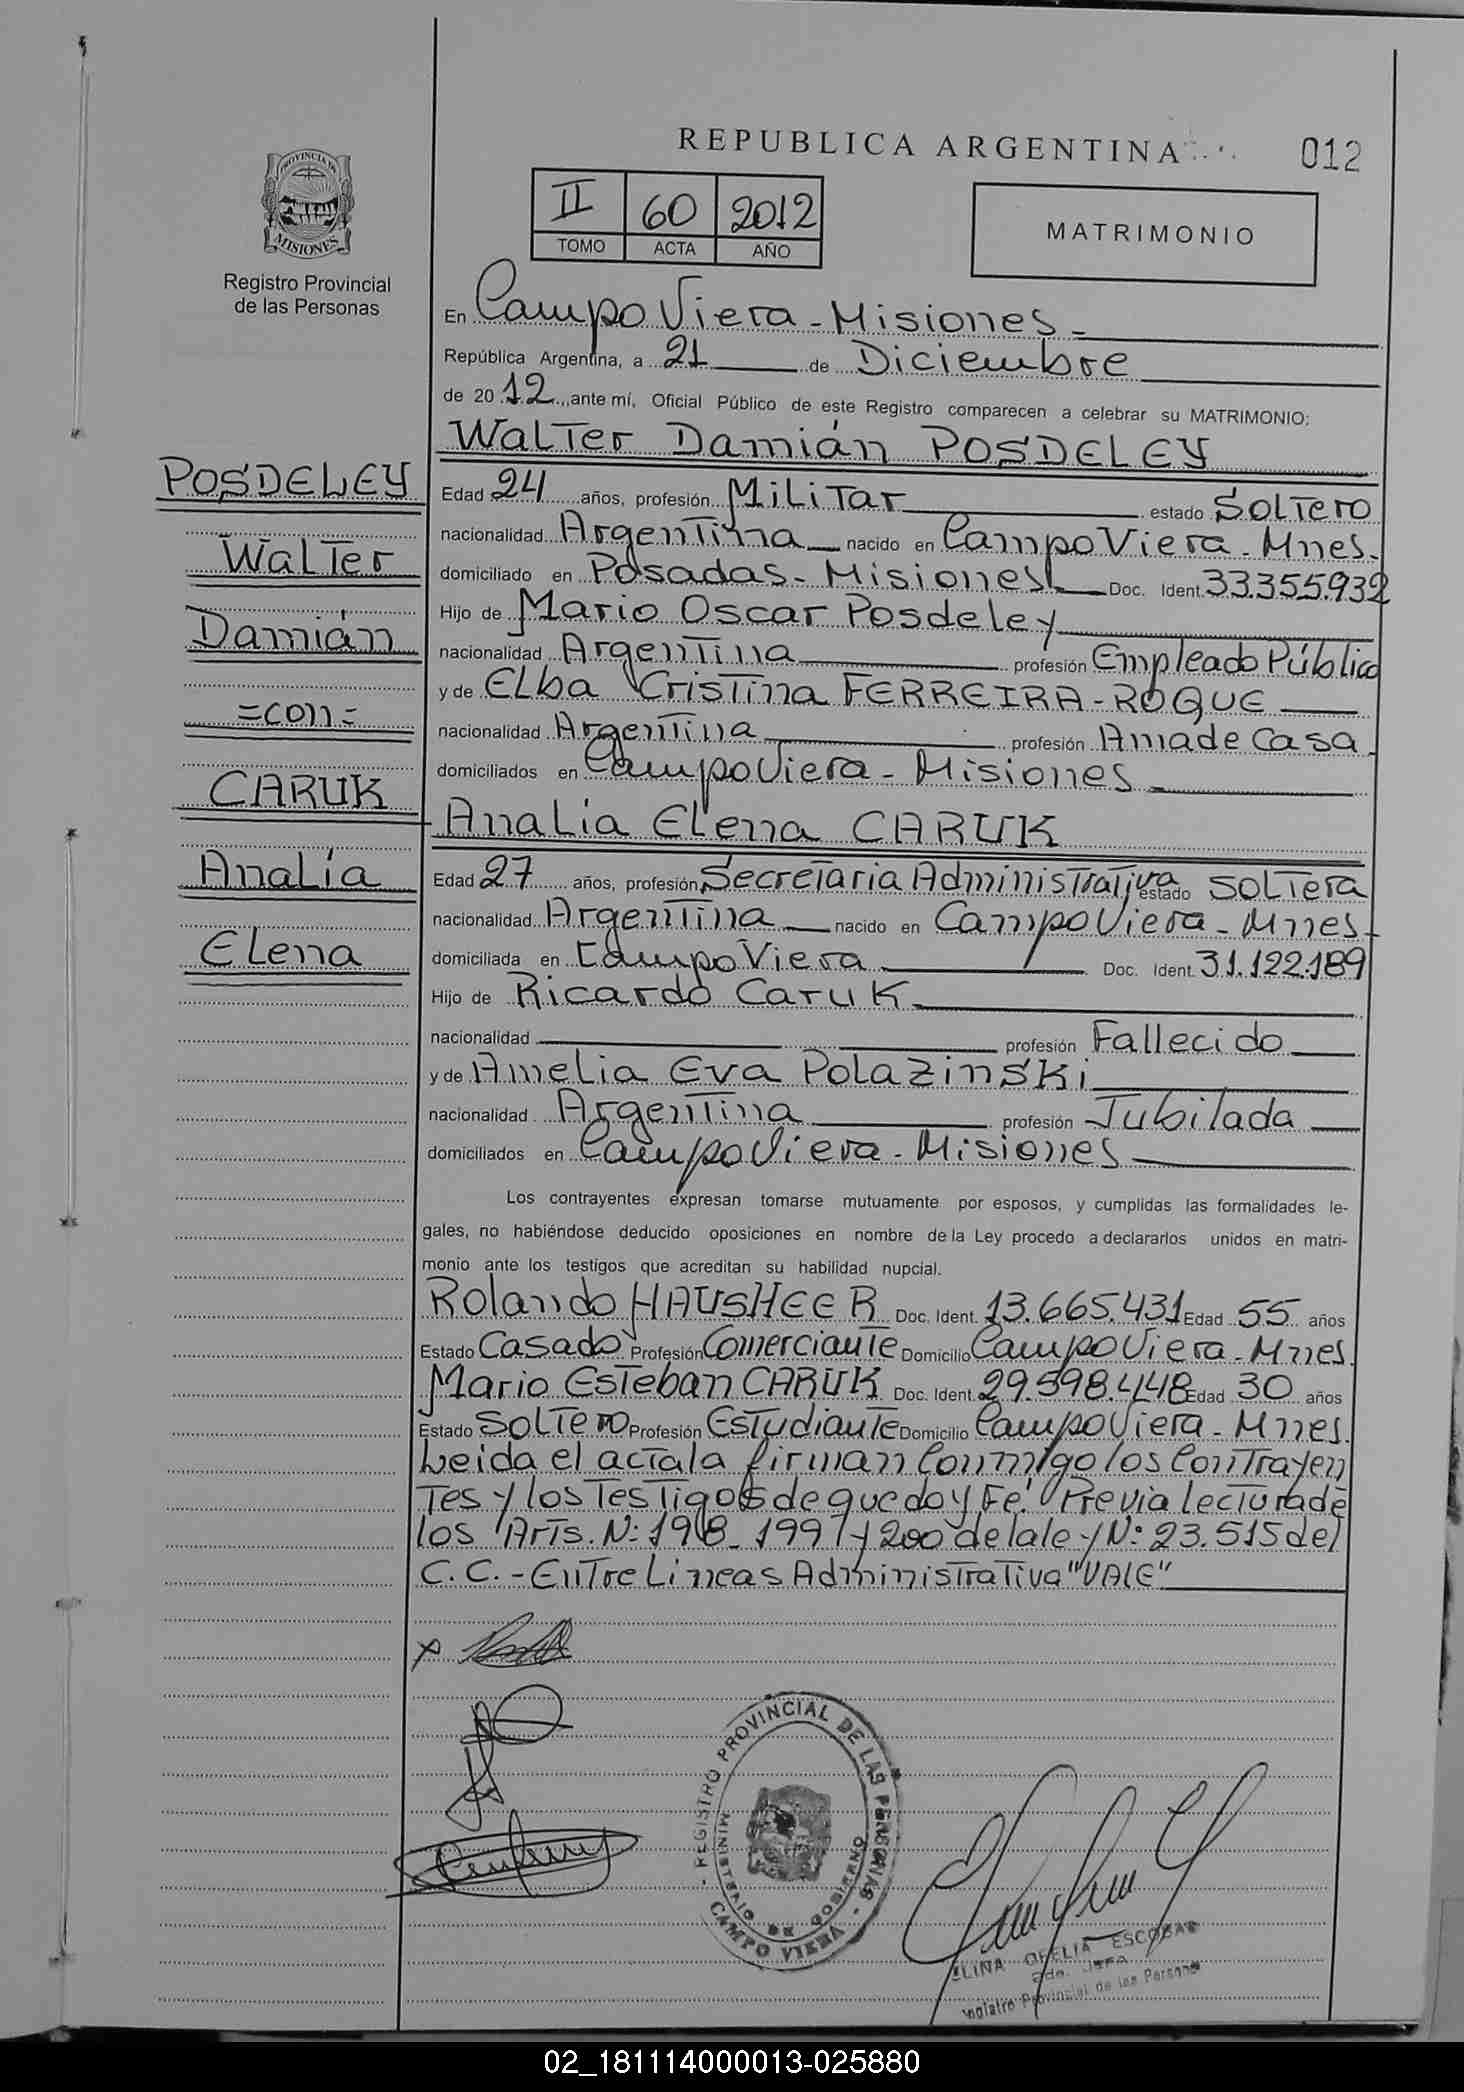 REPUBLICA ARGENTINA
012
PROVINCIA DE
MISIONES
Registro Provincial
de las Personas
II 60 2012
TOMO ACTA AÑO
MATRIMONIO
En Campo Viera - Misiones -
República Argentina, a 21 de Diciembre
de 2012, ante mí, Oficial Público de este Registro comparecen a celebrar su MATRIMONIO:
Walter Damián POSDELEY
POSDELEY
Walter
Damián
=con=
CARUK
Analía
Elena
Edad 24 años, profesión Militar estado Soltero
nacionalidad Argentina nacido en Campo Viera - Mnes -
domiciliado en Posadas - Misiones Doc. Ident. 33.355.932
Hijo de Mario Oscar Posdeley
nacionalidad Argentina profesión Empleado Público
y de Elba Cristina FERREIRA - ROQUE
nacionalidad Argentina profesión Ama de Casa
domiciliados en Campo Viera - Misiones
Analía Elena CARUK
Edad 27 años, profesión Secretaria Administrativa estado Soltera
nacionalidad Argentina nacido en Campo Viera - Mnes -
domiciliada en Campo Viera Doc. Ident. 31.122.189
Hijo de Ricardo Caruk
nacionalidad profesión Fallecido
y de Amelia Eva Polazinski
nacionalidad Argentina profesión Jubilada
domiciliados en Campo Viera - Misiones
Los contrayentes expresan tomarse mutuamente por esposos, y cumplidas las formalidades le-
gales, no habiéndose deducido oposiciones en nombre de la Ley procedo a declararlos unidos en matri-
monio ante los testigos que acreditan su habilidad nupcial.
Rolando HAUSHEER Doc. Ident. 13.665.431 Edad 55 años
Estado Casado Profesión Comerciante Domicilio Campo Viera - Mnes.
Mario Esteban CARUK Doc. Ident. 29.598.448 Edad 30 años
Estado Soltero Profesión Estudiante Domicilio Campo Viera - Mnes.
Leida el acta la firman Conmigo los Contrayen
tes y los Testigos de que doy Fé. Previa lectura de
los Arts. N: 198 - 199 y 200 de la ley N: 23.515 del
C.C. - Entre Lineas Administrativa "VALE"
x
REGISTRO PROVINCIAL DE LAS PERSONAS
MINISTERIO DE GOBIERNO
CAMPO VIERA
OFELIA ESCOBAR
Provincial de las Personas
02_181114000013-025880